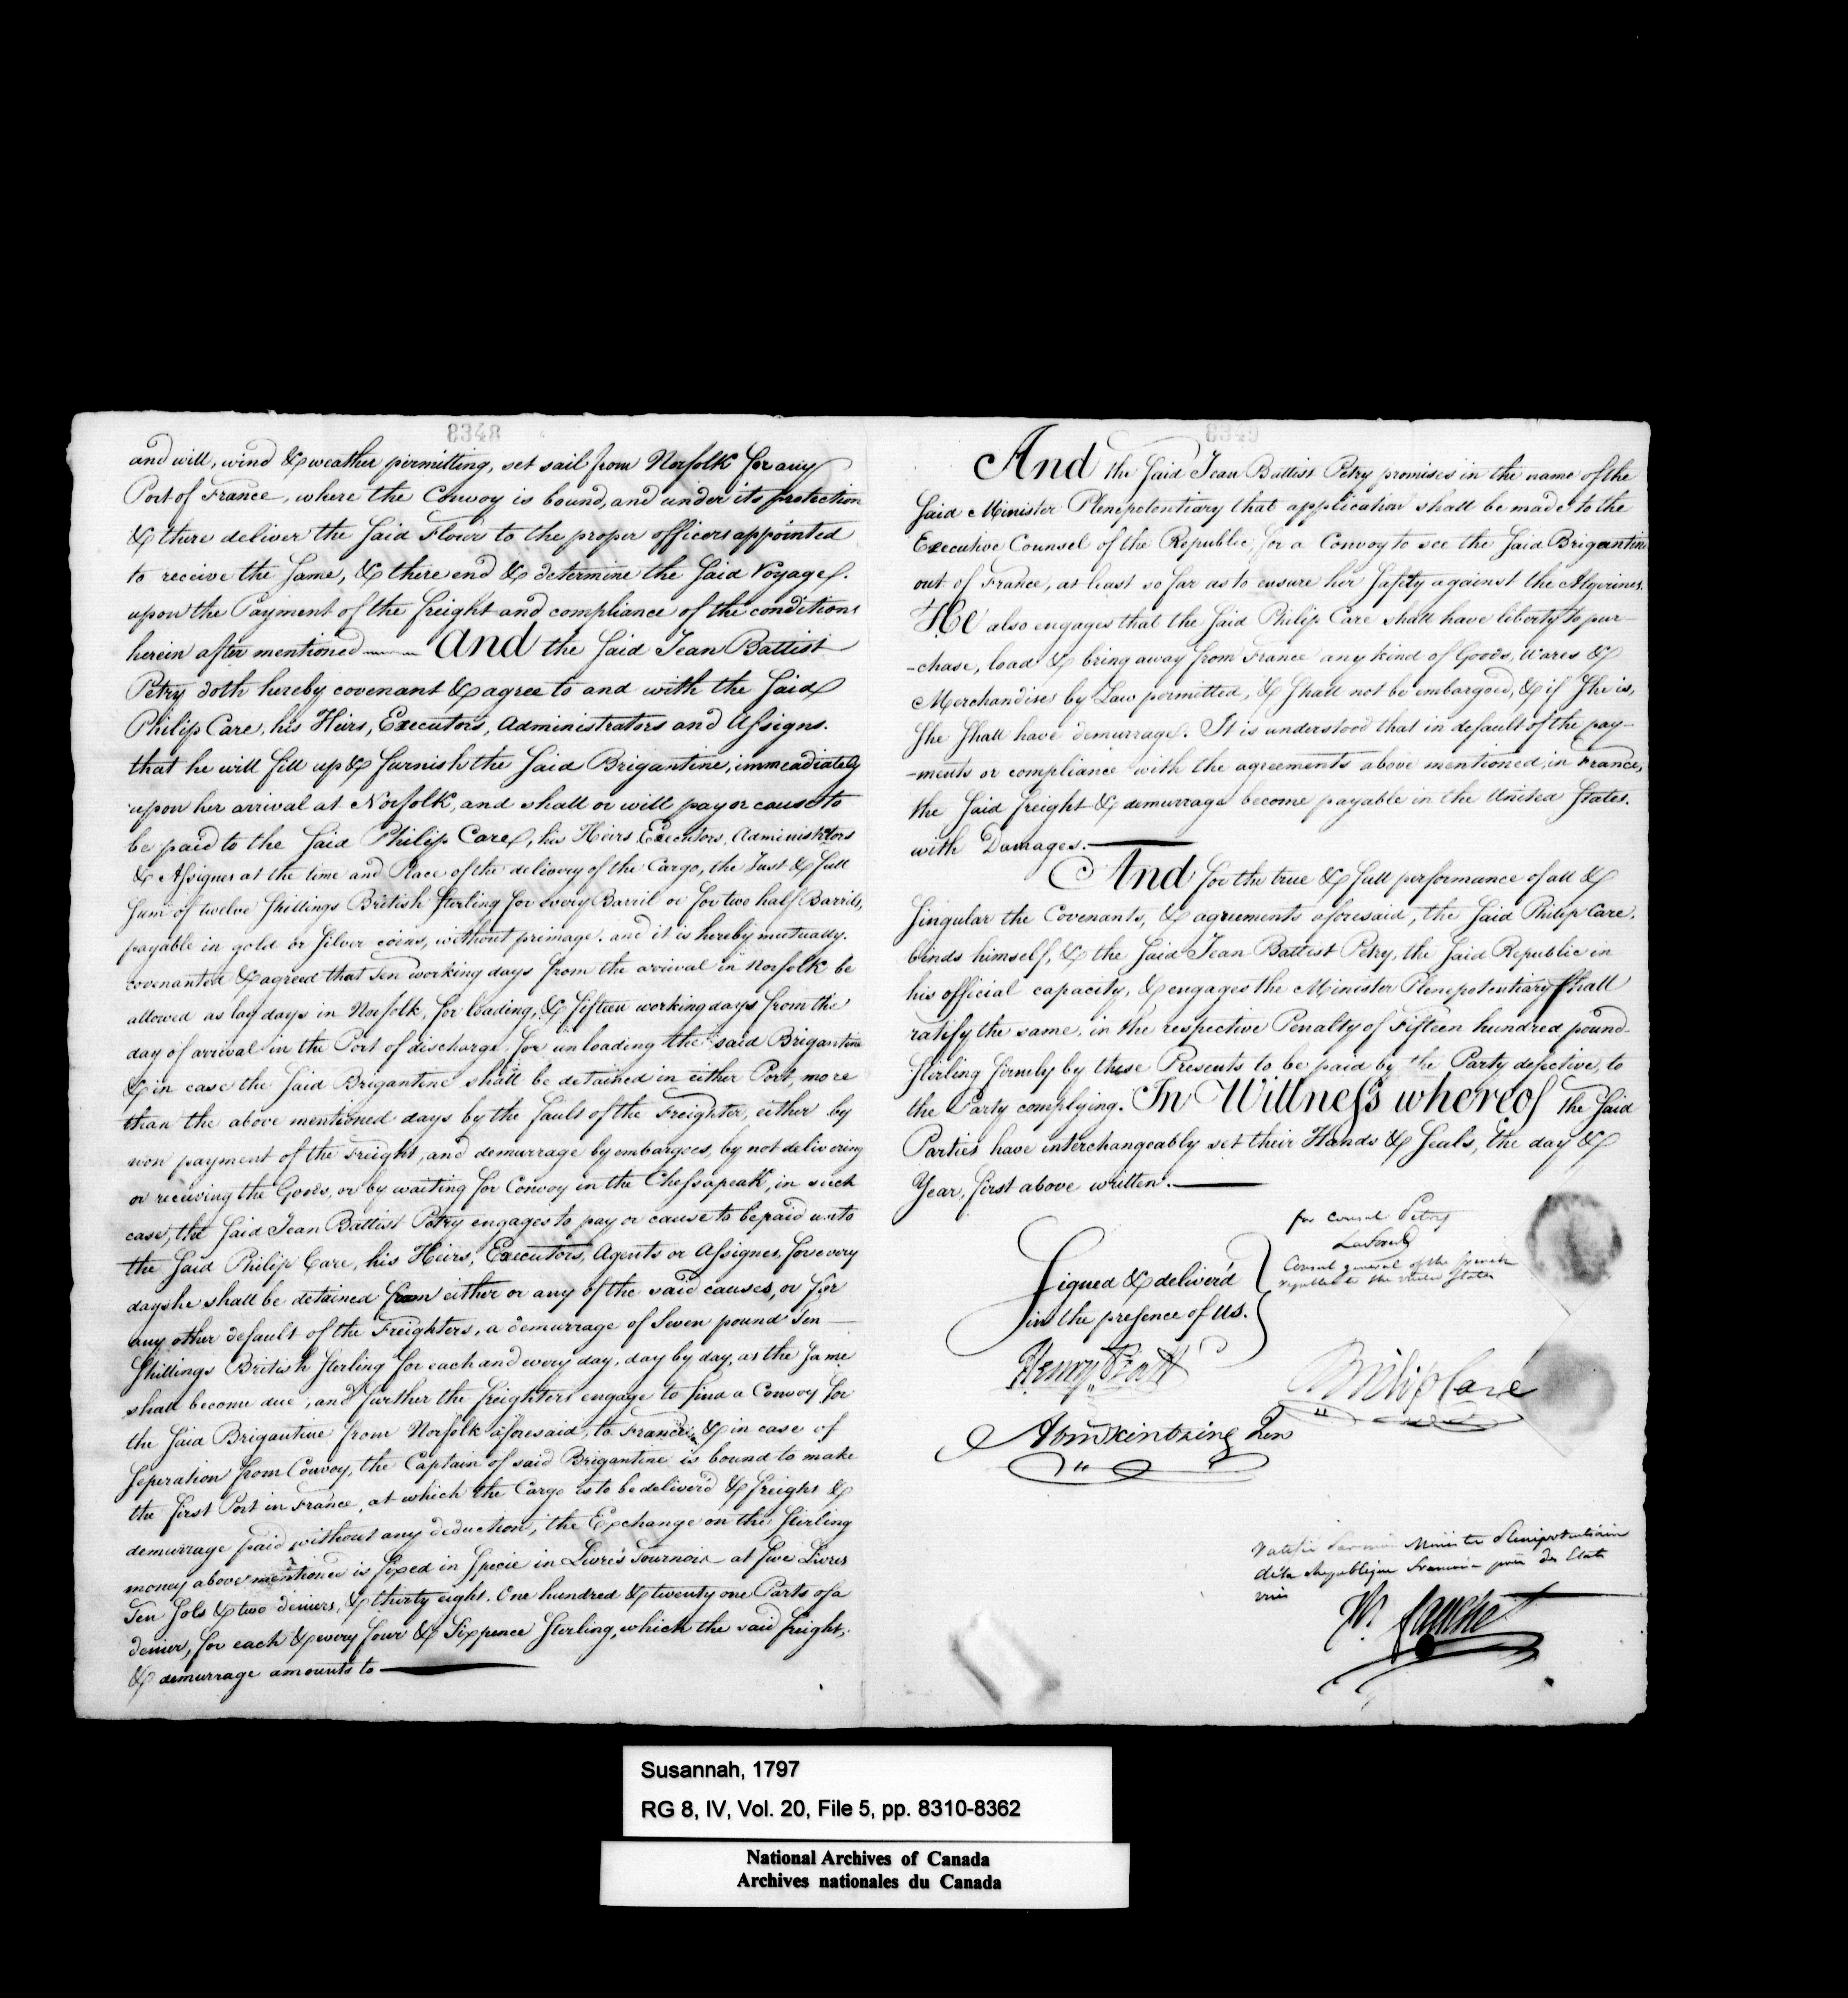 8348
and will, wind & weather permitting, set sail from Norfolk for any
Port of France, where the Convoy is bound, and under its protection
& there deliver the said Flour to the proper officers appointed
to receive the same, & there end & determine the said Voyage.
upon the Payment of the freight and compliance of the conditions
herein after mentioned —— And the said Jean Battist
Petry doth hereby covenant & agree to and with the said
Philip Care, his Heirs, Executors, Administrators and Assigns.
that he will fill up & furnish the said Brigantine, immeadiately
upon her arrival at Norfolk, and shall or will pay or cause to
be paid to the said Philip Care, his Heirs Executors, Administrators
& Assignes at the time and Place of the delivery of the Cargo, the Just & full
sum of twelve shillings British sterling for every Barril or for two half Barrils,
payable in gold or silver coins, without primage. and it is hereby mutually.
covenanted & agreed that Ten working days from the arrival in Norfolk be
allowed as lay days in Norfolk, for loading, & fifteen working days from the
day of arrival in the Port of discharge, for unloading the said Brigantine
& in case the said Brigantine shall be detained in either Port, more
than the above mentioned days by the fault of the Freighter, either by
non payment of the Freight, and demurrage by embargoes, by not delivering
or receiving the Goods, or by waiting for Convoy in the Chessapeak, in such
case, the said Jean Battist Petry engages to pay or cause to be paid unto
the said Philip Care, his Heirs, Executors, Agents or Assignes, for every
day she shall be detained from either or any of the said causes, or for
any other default of the Freighters, a demurrage of Seven pound Ten —
shillings British sterling for each and every day, day by day, as the same
shall become due, and further the freighters engage to find a Convoy for
the said Brigantine from Norfolk aforesaid, to France, & in case of
seperation from Convoy, the Captain of said Brigantine is bound to make
the first Port in France, at which the Cargo is to be deliver'd & freight &
demurrage paid without any deduction, the Exchange on the sterling
money above mentioned is fixed in specie in Livres Tournois at five Livres
Ten Sols & two deniers, & thirty eight. One hundred & twenty one Parts of a
denier, for each & every four & Sixpence sterling, which the said freight,
& demurrage amounts to ——
8349
And the said Jean Battist Petry promises in the name of the
said Minister Plenepotentiary that application shall be made to the
Executive Counsel of the Republic, for a Convoy to see the said Brigantine
out of France, at least so far as to ensure her safety against the Algerines.
He also engages that the said Philip Care shall have liberty to pur-
-chase, load & bring away from France any kind of Goods, Wares &
Merchandises by Law permitted, & shall not be embargoed, & if she is,
she shall have demurrage. It is understood that in default of the pay-
-ments or compliance with the agreements above mentioned, in France,
the said freight & demurrage become payable in the United States.
with Damages. ——
And for the true & full performance of all &
singular the Covenants, & agreements aforesaid, the said Philip Care.
binds himself, & the said Jean Battist Petry, the said Republic in
his official capacity, & engages the Minister Plenepotentiary shall
ratify the same, in the respective Penalty of Fifteen hundred pound
sterling firmly by these Presents to be paid by the Party defective, to
the Party complying. In Wittness whereof the said
Parties have interchangeably set their Hands & Seals, the day &
Year, first above written. ——
for consul Petry
Consul general of the french
republic to the united States
Signed & deliver'd
in the presence of us.
Henry Pratt
Philip Care
Abm Kintzing Jun
Ministre Plenipotentiaire
de la Republique Française près des Etats
unis
Jh. Fauchet
Susannah, 1797
RG 8, IV, Vol. 20, File 5, pp. 8310-8362
National Archives of Canada
Archives nationales du Canada